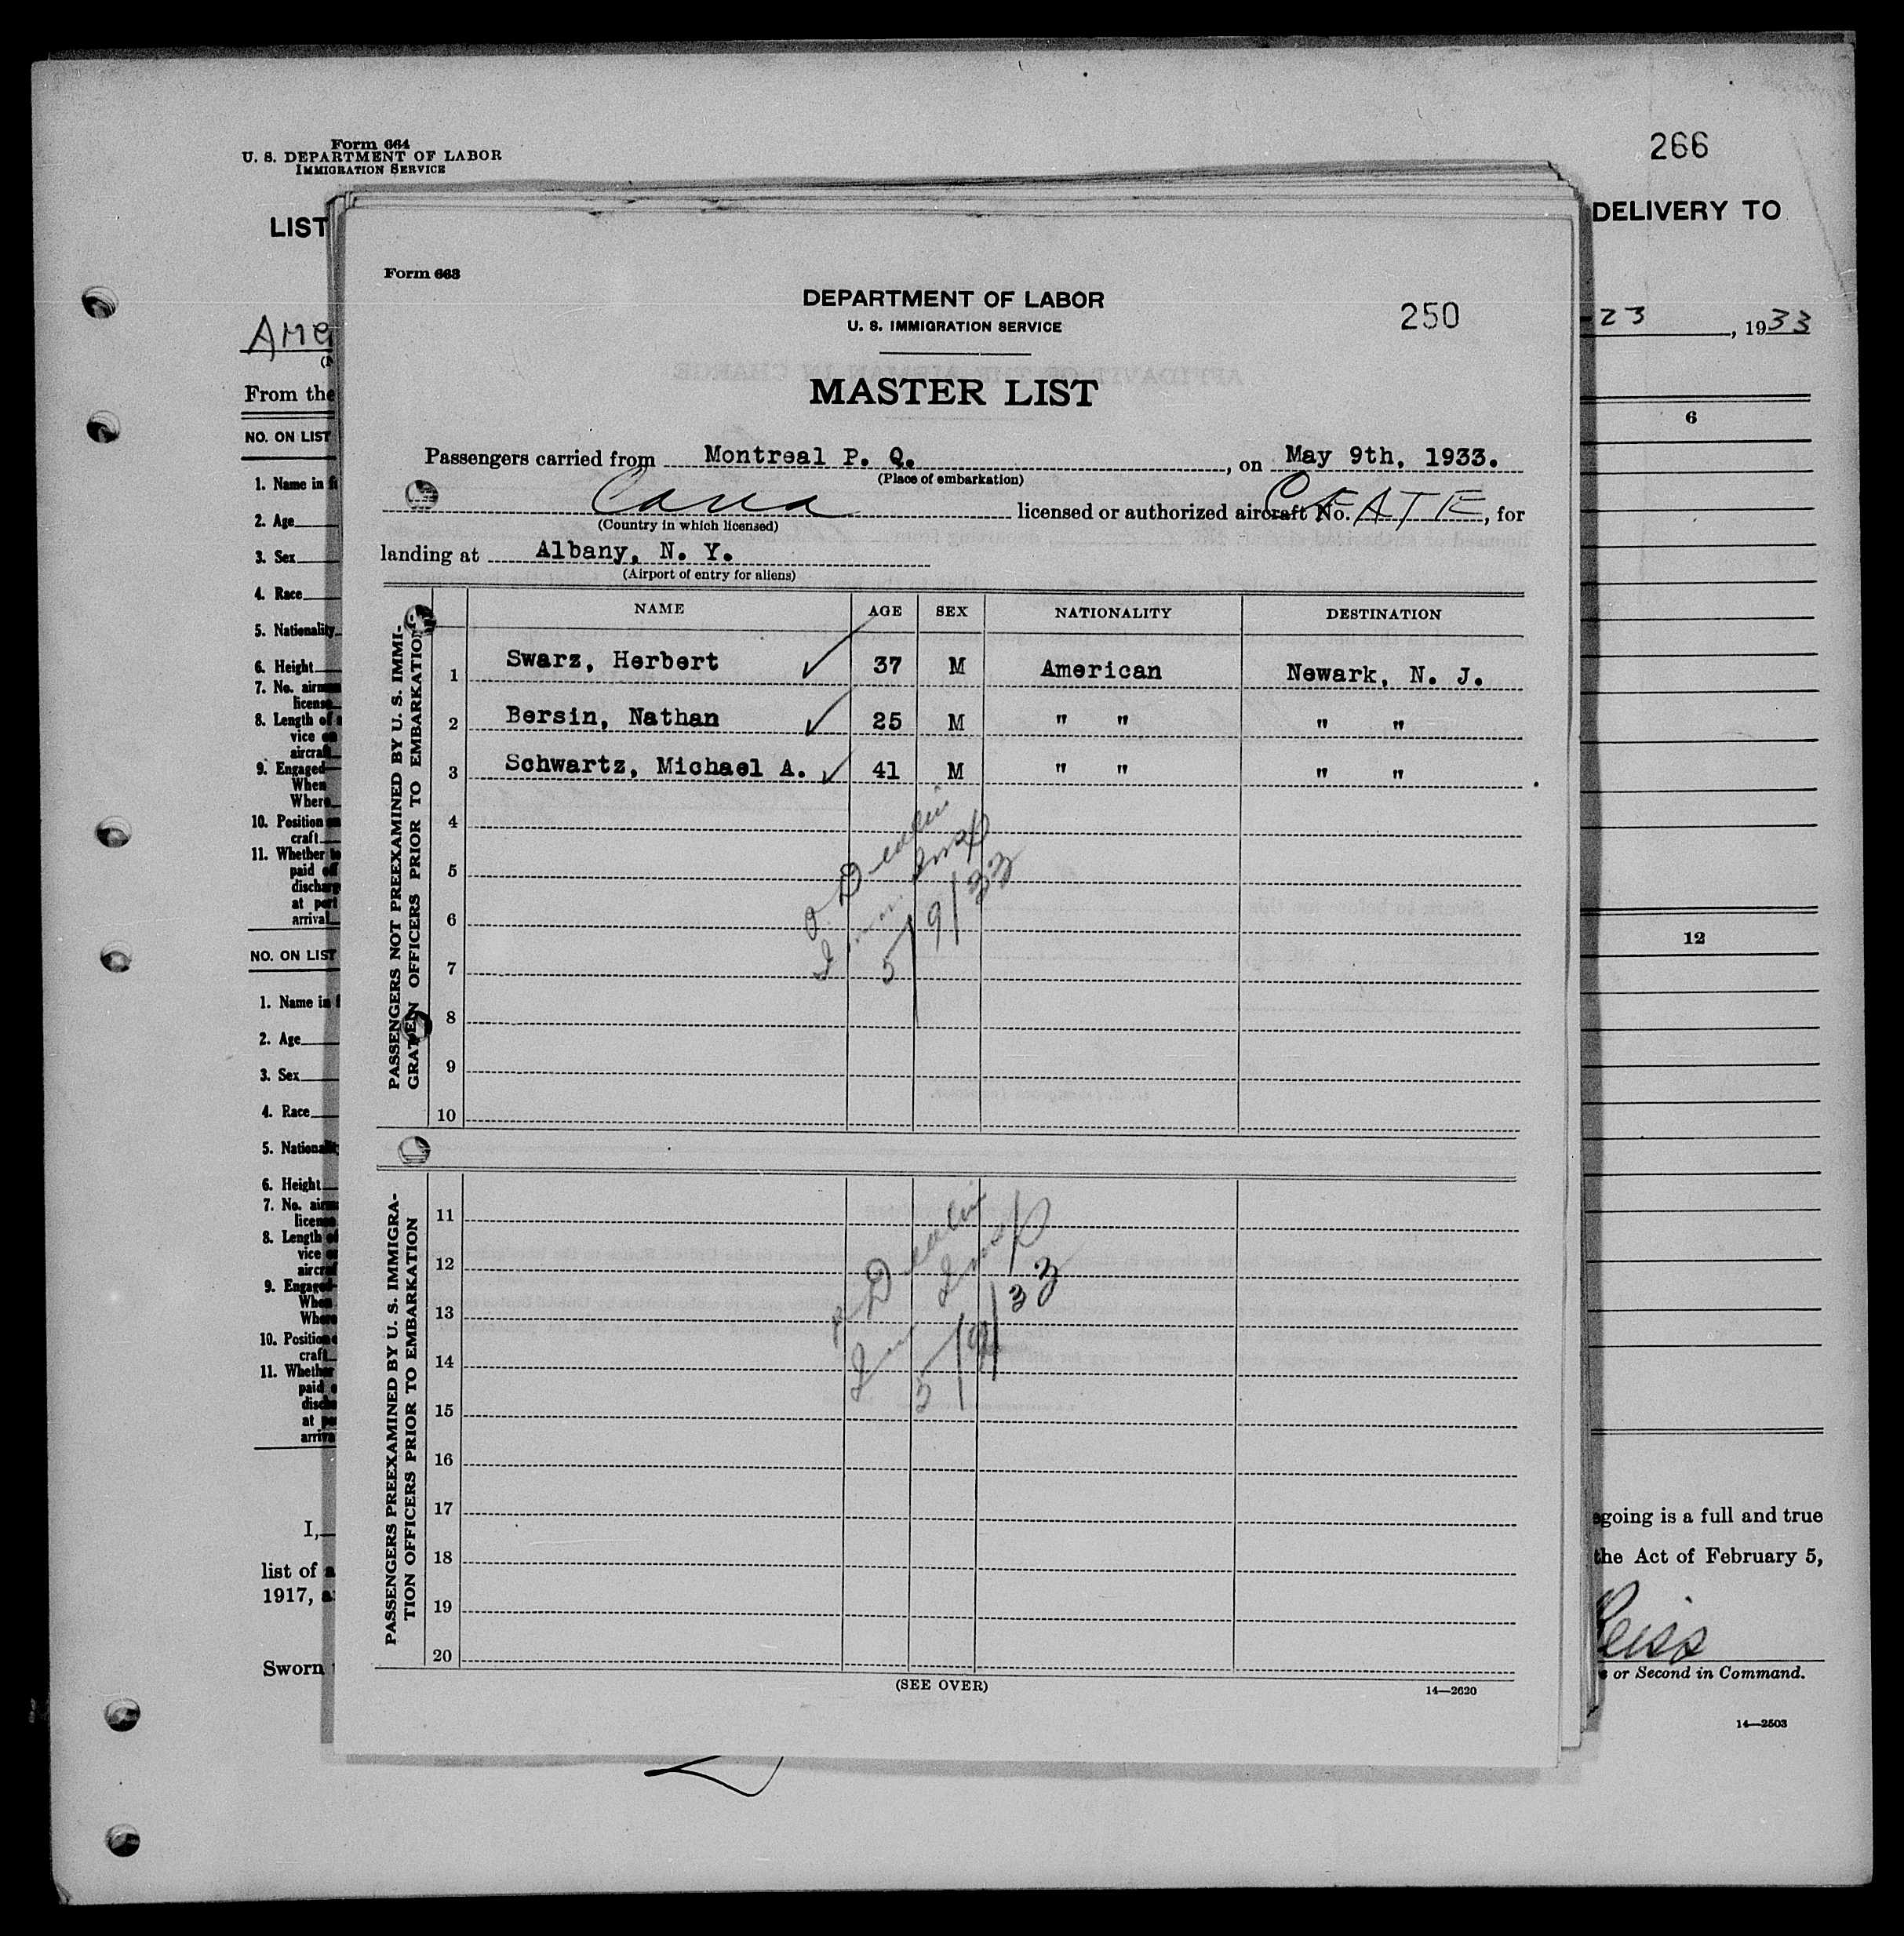 Form 664
U. S. DEPARTMENT OF LABOR
IMMIGRATION SERVICE
266
LIST
DELIVERY TO
23, 1933
From the
NO. ON LIST
6
1. Name in f
2. Age
3. Sex
4. Race
5. Nationality
6. Height
7. No. airm
license
8. Length of
vice
aircraf
9. Engaged
When
Where
10. Position
craft
11. Whether
paid of
discharg
at port
arrival
NO. ON LIST
12
1. Name in f
2. Age
3. Sex
4. Race
5. Nationali
6. Height
7. No. airm
licens
8. Length of
vice
aircraf
9. Engaged
When
Whe
10. Position
craft
11. Whether
paid
disch
at po
arriva
I,
going is a full and true
list of a
the Act of February 5,
1917, a
Sworn
or Second in Command.
14—2503
Form 663
DEPARTMENT OF LABOR
U. S. IMMIGRATION SERVICE
250
MASTER LIST
Passengers carried from Montreal P. Q., on May 9th, 1933.
(Place of embarkation)
Cana licensed or authorized aircraft No. , for
(Country in which licensed)
landing at Albany, N. Y.
(Airport of entry for aliens)
NAME AGE SEX NATIONALITY DESTINATION
PASSENGERS NOT PREEXAMINED BY U. S. IMMI-
GRATION OFFICERS PRIOR TO EMBARKATION
1 Swarz, Herbert ✓ 37 M American Newark, N. J.
2 Bersin, Nathan ✓ 25 M " " " "
3 Schwartz, Michael A. ✓ 41 M " " " "
4
5
6
7
8
9
10
5/9/33
PASSENGERS PREEXAMINED BY U. S. IMMIGRA-
TION OFFICERS PRIOR TO EMBARKATION
11
12
13
14
15
16
17
18
19
20
5/9/33
(SEE OVER)
14—2620